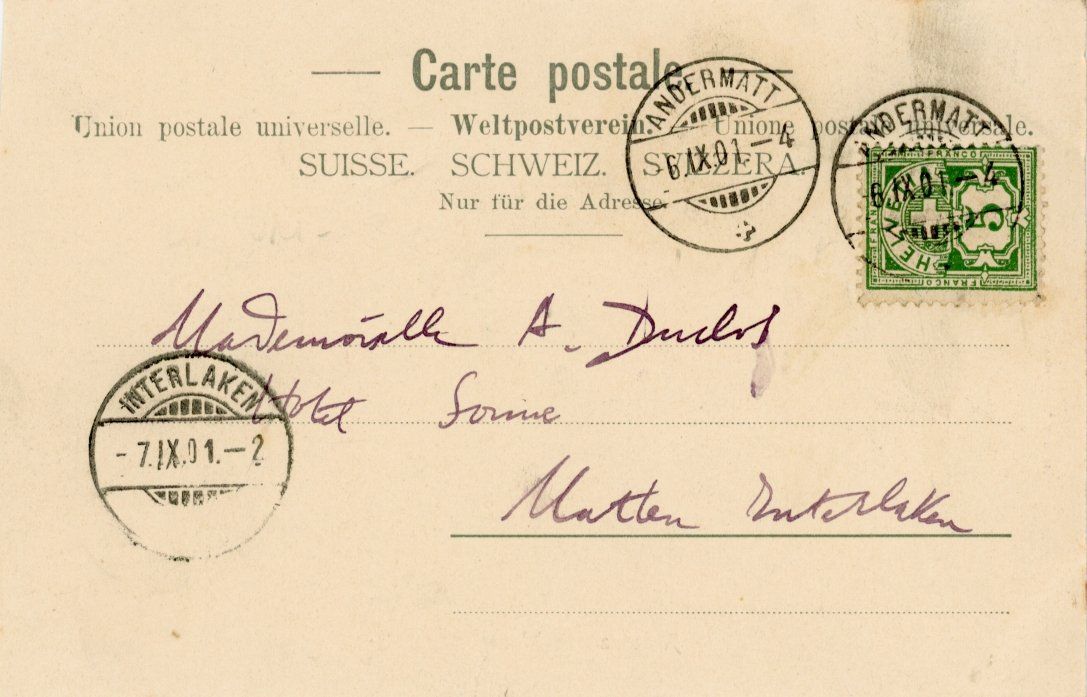 Carte postale
Union postale universelle. — Weltpostverein. — Unione postale universale.
SUISSE. SCHWEIZ. SVIZZERA.
Nur für die Adresse.
ANDERMATT
-6.IX.01.-4
ANDERMATT
6.IX.01.-4
FRANCO
HELVETIA
5
FRANCO
Mademoiselle A. Duclos
INTERLAKEN
-7.IX.01.-2
Hotel Sonne
Matten Interlaken